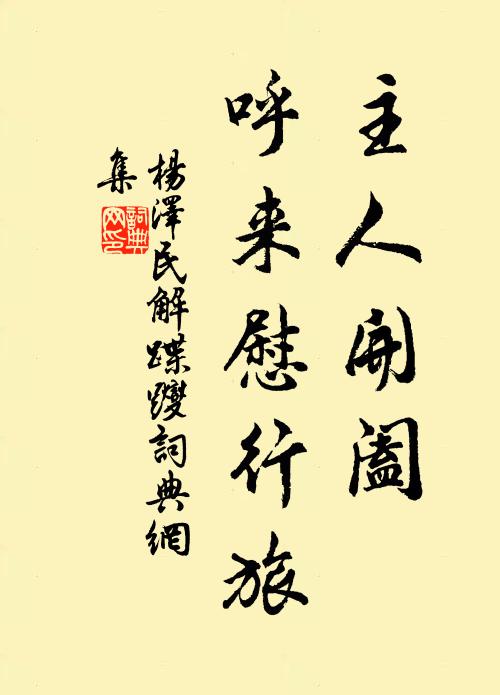 主人開阖
呼来慰行旅
楊澤民解蹀躞詞典網
集
詞典
网印